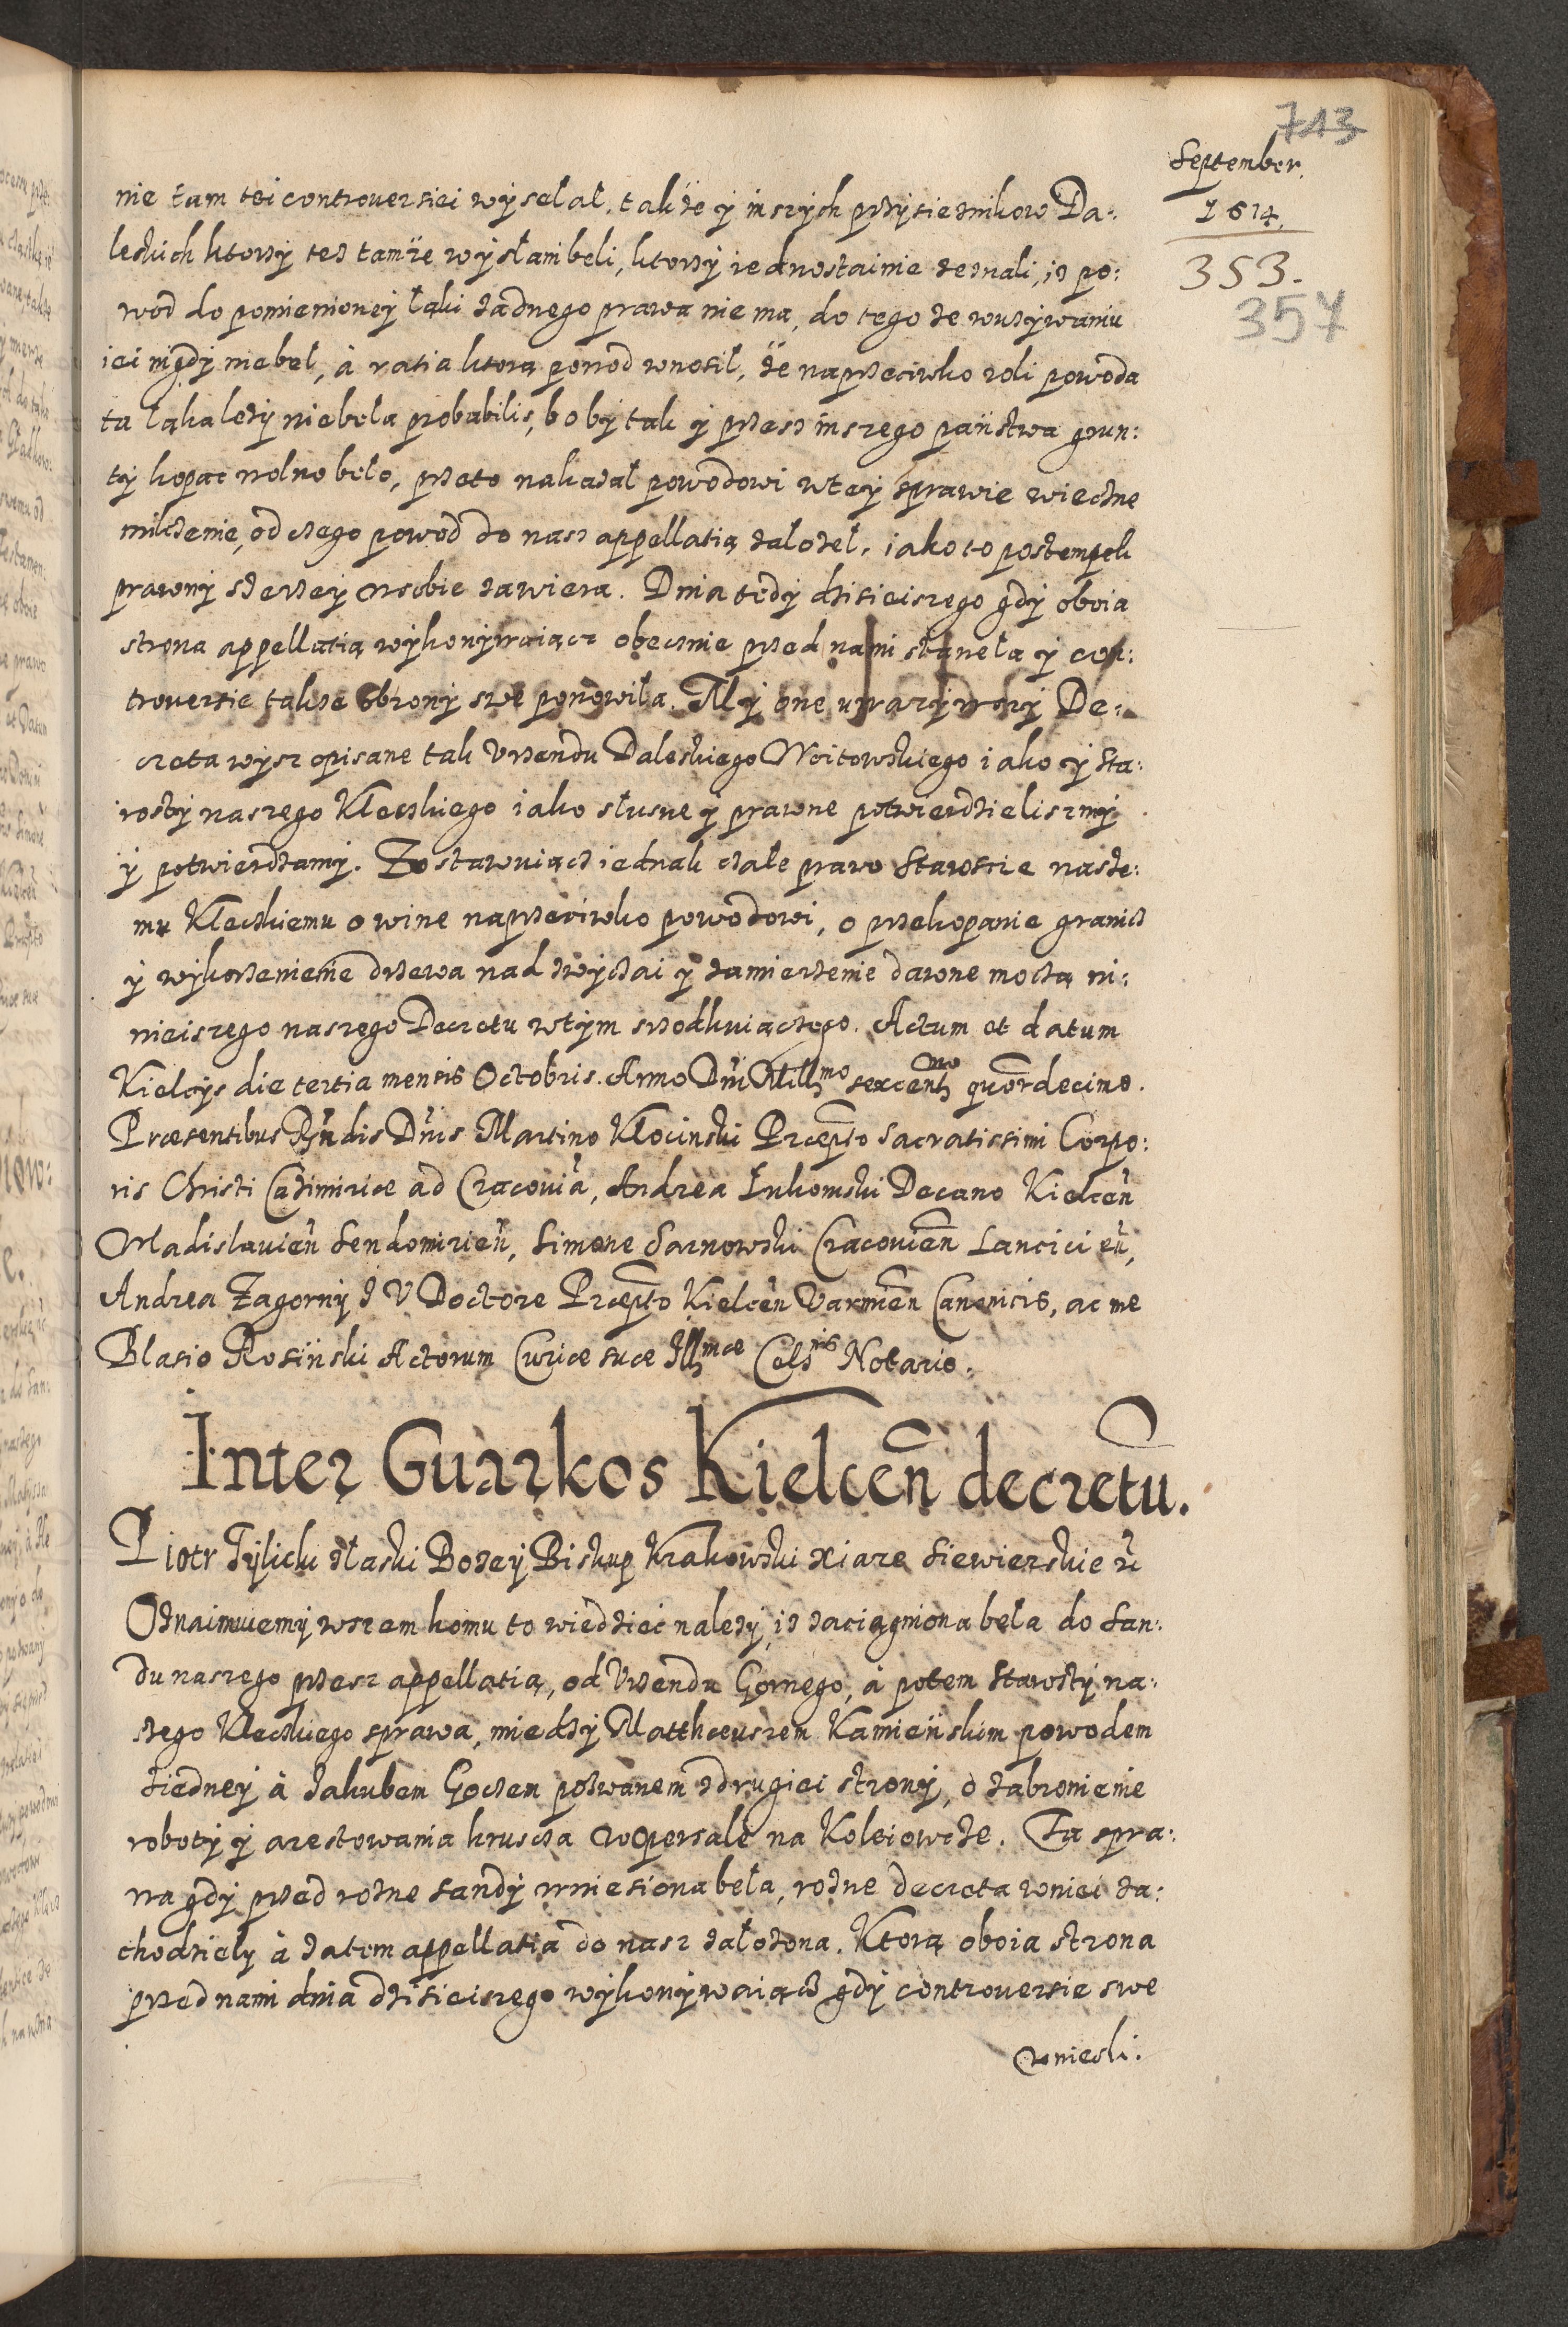 713
September.
1614.
353.
357
nie tam tei controuersiei wysełał, takze y inszych przysieznikow Da:
leskich ktorzy tez tamze wysłani beli, ktorzy iednostainie zeznali, iz po:
wod do pomienioney łąki zadnego prawa nie ma, do tego ze wuzywaniu
iei nigdy niebeł, à ratia ktorą powod wnosił, ze naprzeciwko roli powoda
ta łąka lezy niebeła probabilis, bo by tak y przesz inszego państwa grun:
ty kopac wolno beło, przeto nakazał powodowi wtey sprawie wieczne
milczenie, od czego powod do nasz appellatią założeł, iako to postempek
prawny szerzey wsobie zawiera. Dnia tedy dzisieiszego gdy oboia
strona appellatią wykonywaiącz obecznie przed nami staneła y con:
trouersie takze obrony swe ponowiła. My one uwazywszy De:
creta wysz opisane tak Vrzendu Daleskiego Woitowskiego iako y Sta:
rosty naszego Kleczkiego iako słusne y prawne potwierdzieliszmy
y potwierdzamy. Zostawuiącz iednak czałe prawo Staroscie nasze:
mu Kleczkiemu o wine naprzeciwko powodowi, o przekopanie granicz
y wykorzenienie drzewa nad zwyczai y zamierzenie dawne moczą ni:
nieiszego naszego Decretu wtym srzodkuiączego. Actum et datum
Kielcijs die tertia mensis Octobris. Anno Dni Millmo sexcentmo quardecimo.
Præsentibus Rndis Dnis Martino Kłocinski Præpto Sacratissimi Corpo:
ris Christi Casimiriæ ad Cracouia, Andrea Łukomski Decano Kielcen
Wladislauien Sendomirien, Simone Sarnowski Cracouien Lancicien,
Andrea Zagorny I V Doctore Præpto Kielcen Varmien Canonicis, ac me
Blasio Rosinski Actorum Curiæ suæ Illmæ Celsnis Notario.
Inter Guarkos Kielcen decretu.
Piotr Tylicki z łaski Bozey Biskup Krakowski xiaze Siewierskie &c
Oznaimuiemy wszem komu to wiedziec nalezy, iz zaciągniona beła do San:
du naszego przesz appellatią, od Vrzendu Gornego, à potem Starosty na:
szego Kleczkiego sprawa, miedzy Matthæuszem Kamieńskim powodem
ziedney à Jakubem Goczem pozwanem zdrugiei strony, o zabronienie
roboty y arestowania kruscza w Opersale na Koleiowcze. Ta spra:
wa gdy przed rozne Sandy wniesiona beła, rozne decreta wniei za:
chodziely à zatem appellatia do nasz założona. Ktorą oboia strona
przed nami dnia dzisieiszego wykonywaiącz gdy controuersie swe
wniesli: